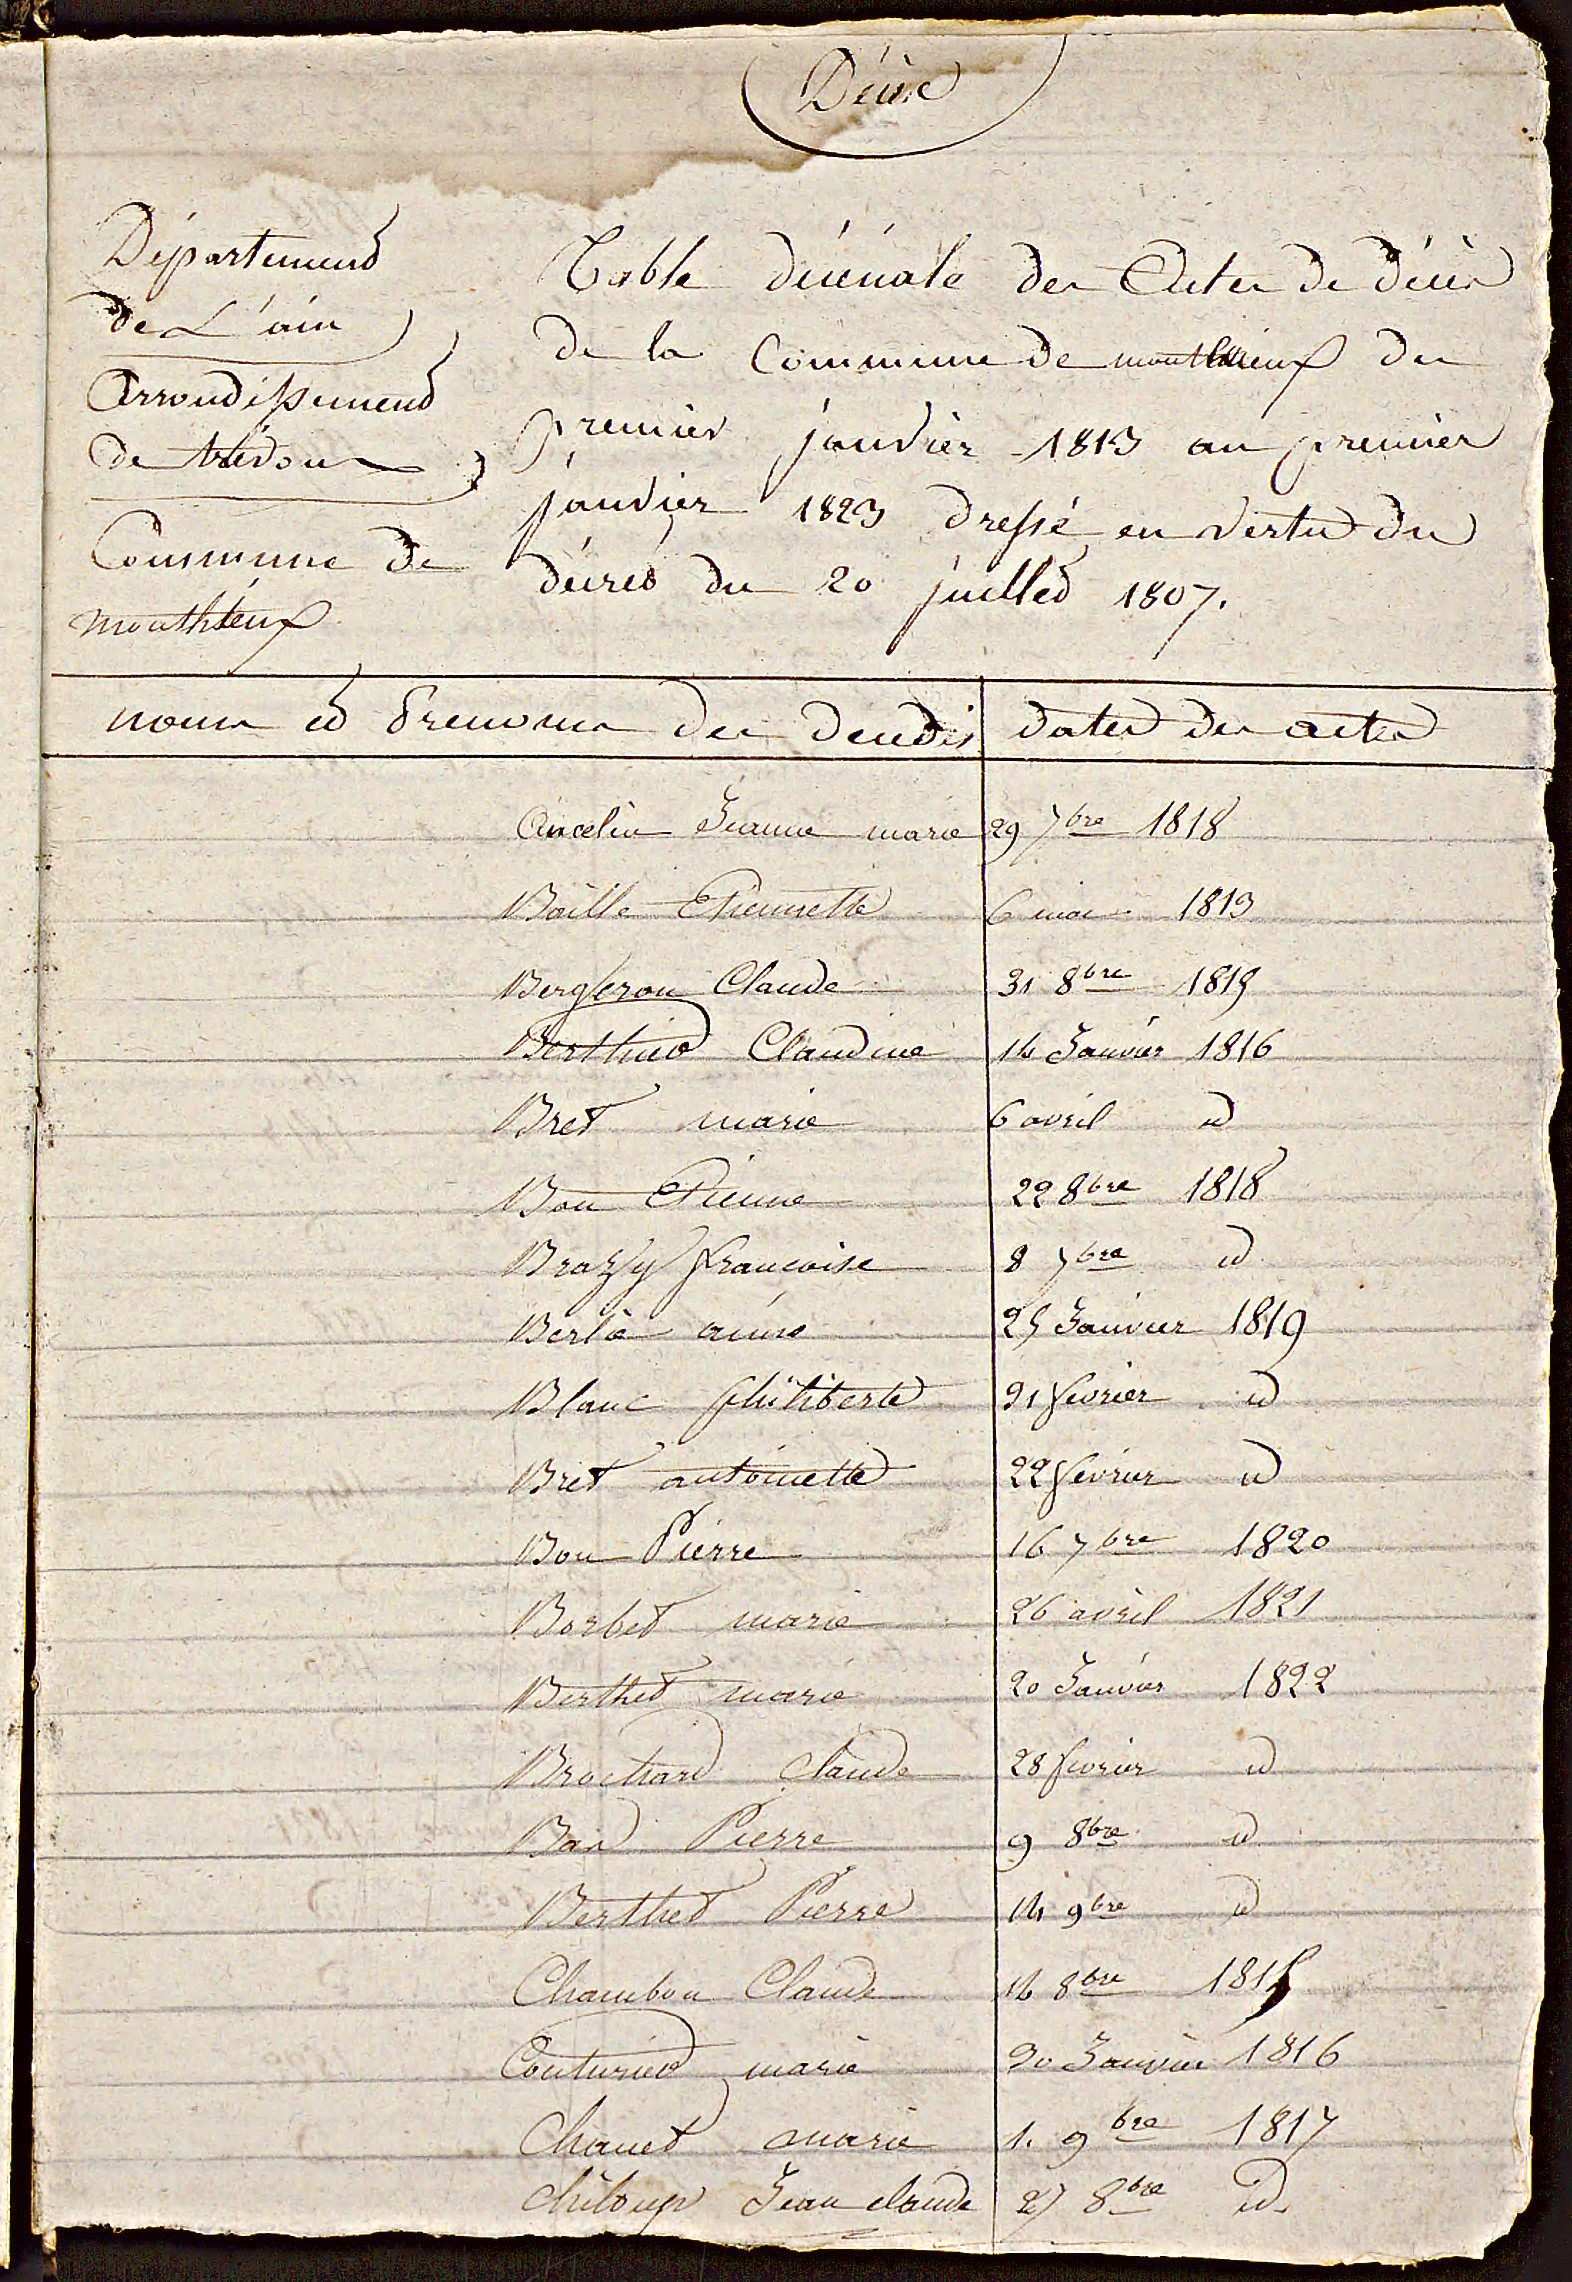 Décès
Département
de L'ain
Arrondissement
de trévoux
Commune de
monthieux
Table décénale des Actes de décès
de la Commune de monthieux du
premier janvier 1813 au premier
janvier 1823 dressé en vertu du
décret du 20 juillet 1807.
noms et Prenoms des décédés dates des actes
Ancelin Jeanne marie 29 7bre 1818
Baille Etiennette 6 mai 1813
Bergeron Claude 31 8bre 1815
Claudine 14 Janvier 1816
Bret marie 6 avril id
Bon Etienne 22 8bre 1818
Brazy francoise 8 7bre id
Berlie 25 Janvier 1819
Blanc philiberte 21 fevrier id
Bret antoinette 22 fevrier id
Bon Pierre 16 7bre 1820
Barbet marie 26 avril 1821
Berthet marie 20 Janvier 1822
Brochard claude 28 fevrier id
Pierre 9 8bre id
Berthet Pierre 14 9bre id
Chambon Claude 14 8bre 1815
Couturier marie 30 Janvier 1816
Chanet marie 1. 9bre 1817
Chiloup Jean claude 27 8bre id